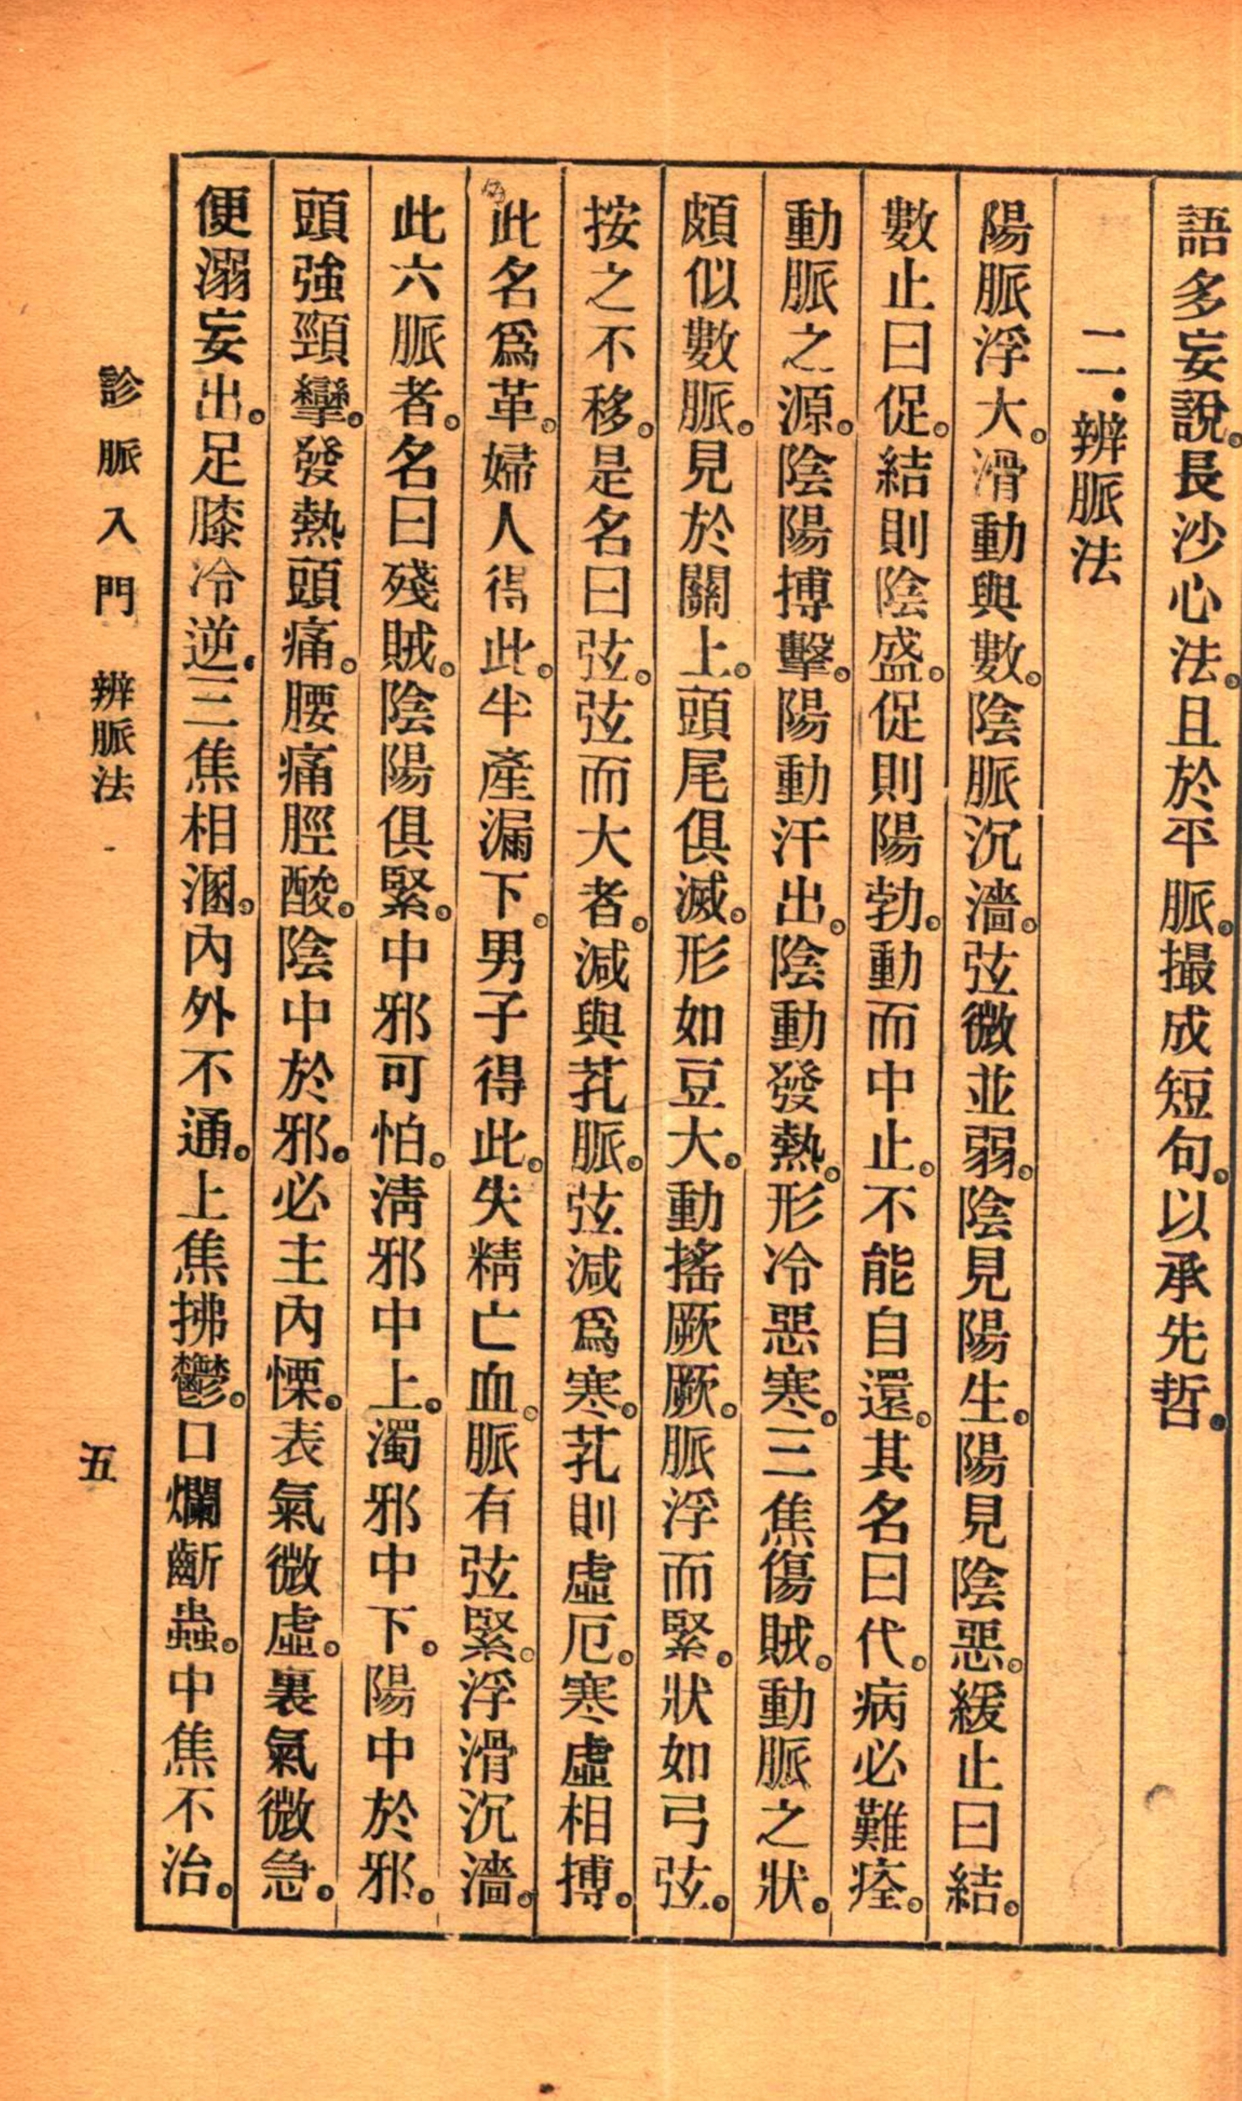 語多妄說。長沙心法。且於平脈。撮成短句。以承先哲。
二．辨脈法
陽脈浮大。滑動與數。陰脈沉濇。弦微並弱。陰見陽生。陽見陰惡。緩止曰結。
數止曰促。結則陰盛。促則陽勃。動而中止。不能自還。其名曰代。病必難痊。
動脈之源。陰陽搏擊。陽動汗出。陰動發熱。形冷惡寒。三焦傷賊。動脈之狀。
頗似數脈。見於關上。頭尾俱滅。形如豆大。動搖厥厥。脈浮而緊。狀如弓弦。
按之不移。是名曰弦。弦而大者。減與芤脈。弦減爲寒。芤則虛厄。寒虛相搏。
此名爲革。婦人得此。半產漏下。男子得此。失精亡血。脈有弦緊。浮滑沉濇。
此六脈者。名曰殘賊。陰陽俱緊。中邪可怕。淸邪中上。濁邪中下。陽中於邪。
頭強頸攣。發熱頭痛。腰痛脛酸。陰中於邪。必主內慄。表氣微虛。裏氣微急。
便溺妄出。足膝冷逆。三焦相溷。內外不通。上焦拂鬱。口爛齗蟲。中焦不治。
診脈入門 辨脈法
五